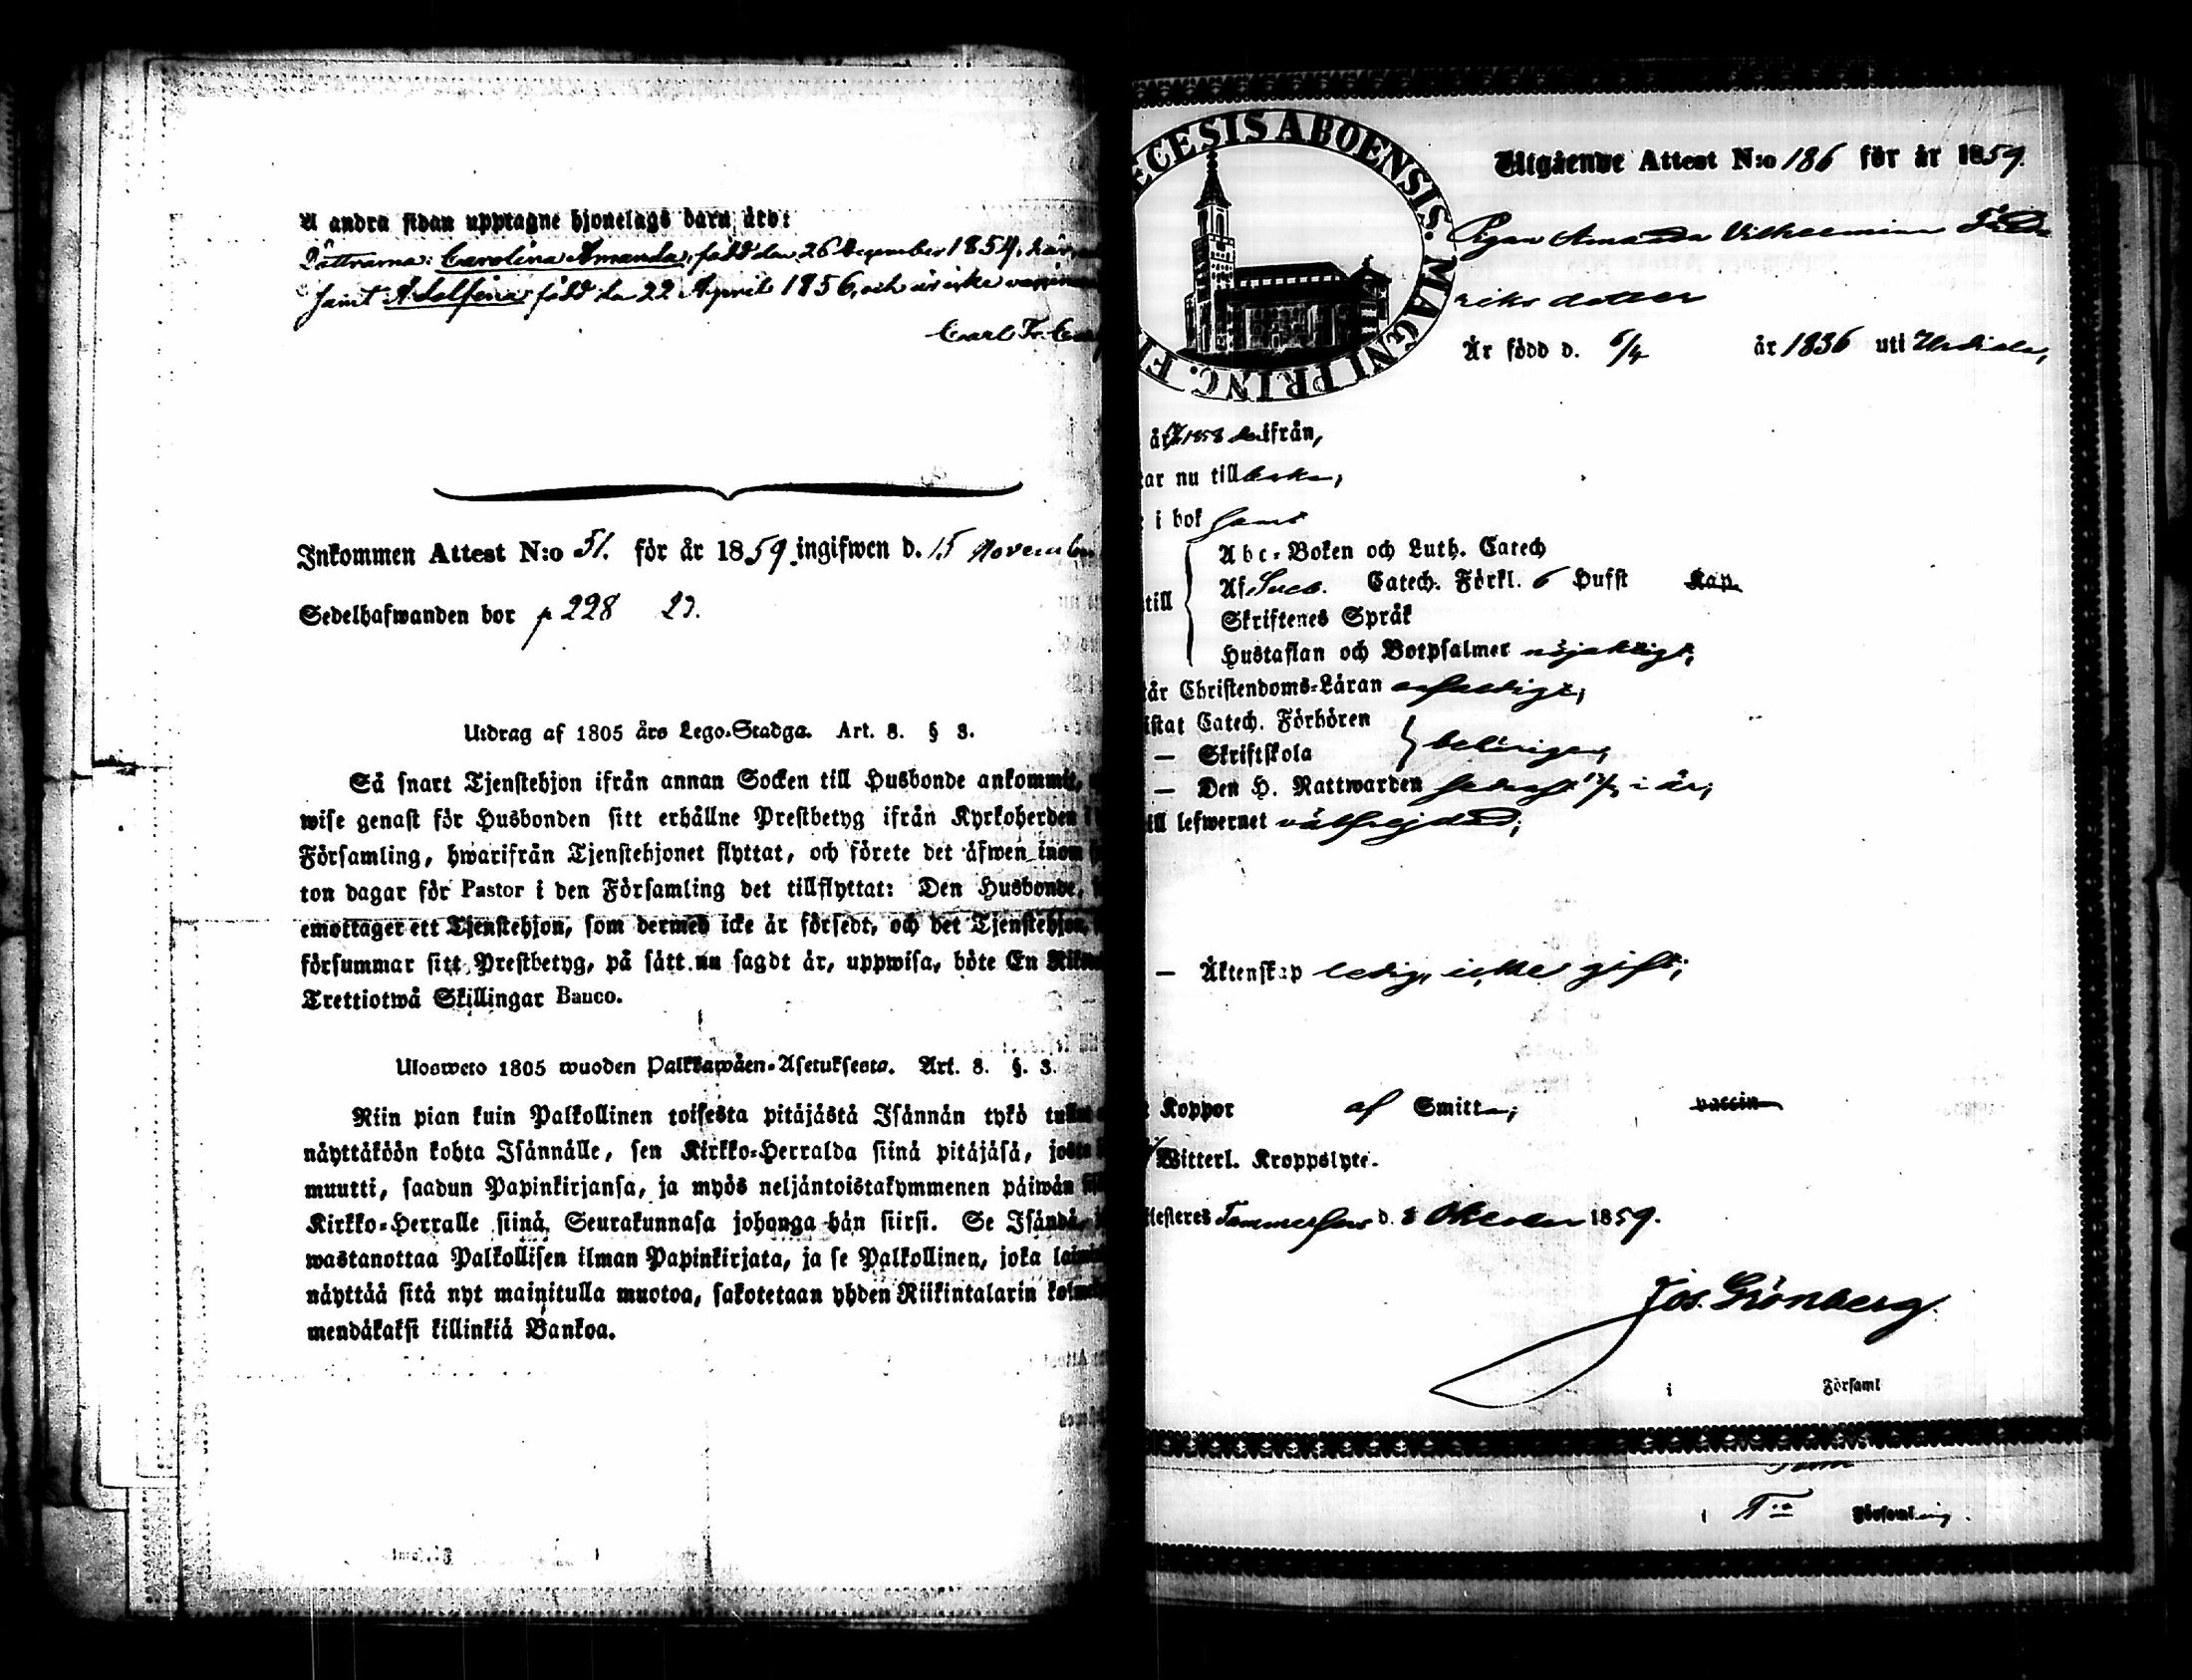 A andra sidan upptagne hjonelags barn äro:
Döttrarna: Carolina Amanda, född den 26 December 1854,
samt Adolfina född den 22 April 1856, och är icke
Carl Fr.
Inkommen Attest N:o 51. för år 1859. ingifwen d. 15 November
Sedelhafwanden bor p 228
Utdrag af 1805 års Lego-Stadga. Art. 8. § 3.
Så snart Tjenstehjon ifrån annan Socken till Husbonde ankommit,
wise genast för Husbonden sitt erhållne Prestbetyg ifrån Kyrkoherden i
Församling, hwarifrån Tjenstehjonet flyttat, och förete det äfwen inom
ton dagar för Pastor i den Församling det tillflyttat: Den Husbonde,
emottager ett Tjenstehjon, som dermed icke är försedt, och det Tjenstehjon,
försummar sitt Prestbetyg, på sätt nu sagdt är, uppwisa, böte En
Trettiotwå Skillingar Banco.
Ulosweto 1805 wuoden Palkkawäen-Asetuksesta. Art. 8. §. 3.
Niin pian kuin Palkollinen toisesta pitäjästä Isännän tykö
näyttäköön kohta Isännälle, sen Kirkko-Herralda siinä pitäjäsä, josta
muutti, saadun Papinkirjansa, ja myös neljäntoistakymmenen päiwän
Kirkko-Herralle siinä Seurakunnasa johonga hän siirsi. Se Isändä,
wastanottaa Palkollisen ilman Papinkirjata, ja se Palkollinen, joka
näyttää sitä nyt mainitulla muotoa, sakotetaan yhden Riikintalarin
mendäkaksi killinkiä Bankoa.
ECESIS ABOENSIS. MAGNI PRINC. FI
Utgående Attest N:o 186 för år 1859.
Pigan Amanda Vilhelmina
riksdotter
Är född d. 6/4 år 1836 uti Urdiala,
år 1858 derifrån,
tar nu tillbaka,
i bok samt
till
Abc-Boken och Luth. Catech
Af Sveb. Catech. Förkl. 6 Hufst Kap.
Skriftenes Språk
Hustaflan och Botpsalmer nöjaktigt,
tår Christendoms-Läran enfaldigt,
istat Catech. Förhören
— Skriftskola behörigen,
— Den H. Nattwarden sednast i år,
till lefwernet välfrejdad;
— Äktenskap ledig, icke gift;
Koppor af Smitta; vaccin
Witterl. Kroppslyte.
ttesteres Tammerfors d. 8 Oktober 1859.
Jos. Grönberg.
i Församl
i Församling.